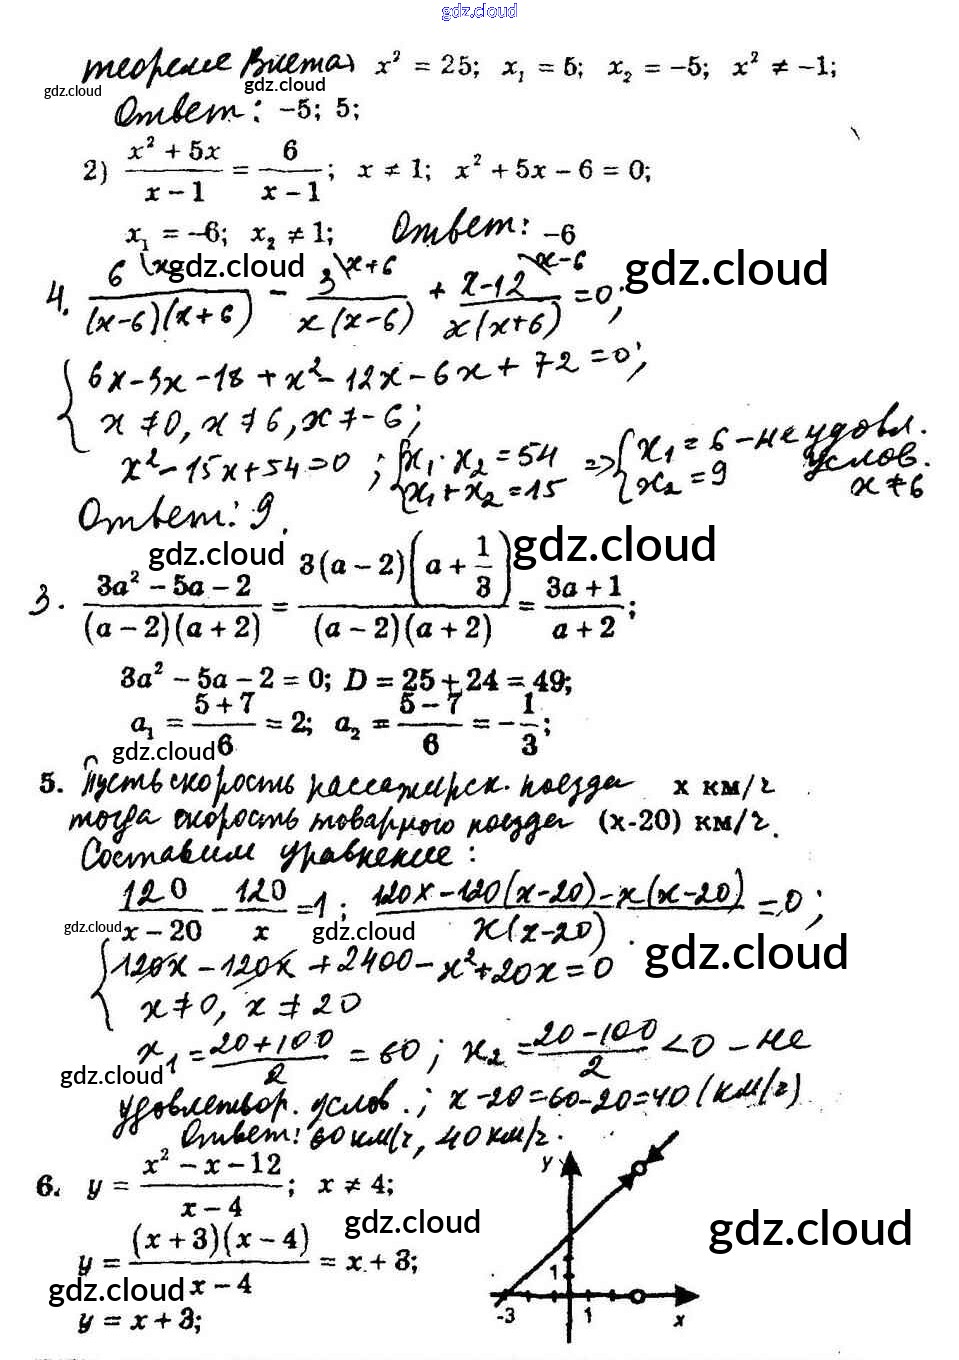 gdz.cloud
теореме Виета x² = 25; x₁ = 5; x₂ = −5; x² ≠ −1;
gdz.cloud gdz.cloud
Ответ: −5; 5;
2) (x² + 5x)/(x − 1) = 6/(x − 1); x ≠ 1; x² + 5x − 6 = 0;
x₁ = −6; x₂ ≠ 1; Ответ: −6
gdz.cloud gdz.cloud
4. 6\x/((x−6)(x+6)) − 3\x+6/(x(x−6)) + x−12\x−6/(x(x+6)) = 0;
{6x−3x−18+x²−12x−6x+72=0;
x≠0, x≠6, x≠−6;
x²−15x+54=0; {x₁·x₂=54 x₁+x₂=15 => {x₁=6 − не удовл. услов. x≠6 x₂=9
Ответ: 9.
gdz.cloud gdz.cloud
3. (3a² − 5a − 2)/((a − 2)(a + 2)) = 3(a − 2)(a + 1/3)/((a − 2)(a + 2)) = (3a + 1)/(a + 2);
3a² − 5a − 2 = 0; D = 25 + 24 = 49;
a₁ = (5 + 7)/6 = 2; a₂ = (5 − 7)/6 = −1/3;
gdz.cloud
5. Пусть скорость пассажирск. поезда x км/ч
тогда скорость товарного поезда (x-20) км/ч.
Составим уравнение:
120/(x − 20) − 120/x = 1; (120x−120(x−20)−x(x−20))/(x(x−20)) = 0;
gdz.cloud gdz.cloud gdz.cloud
{120x−120x+2400−x²+20x=0
x≠0, x≠20
x₁=(20+100)/2=60; x₂=(20−100)/2<0 − не
gdz.cloud
удовлетвор. услов.; x−20=60−20=40 (км/ч)
Ответ: 60 км/ч, 40 км/ч.
6. y = (x² − x − 12)/(x − 4); x ≠ 4;
gdz.cloud gdz.cloud
y = (x + 3)(x − 4)/(x − 4) = x + 3;
gdz.cloud
y = x + 3;
y
1
-3 1 x